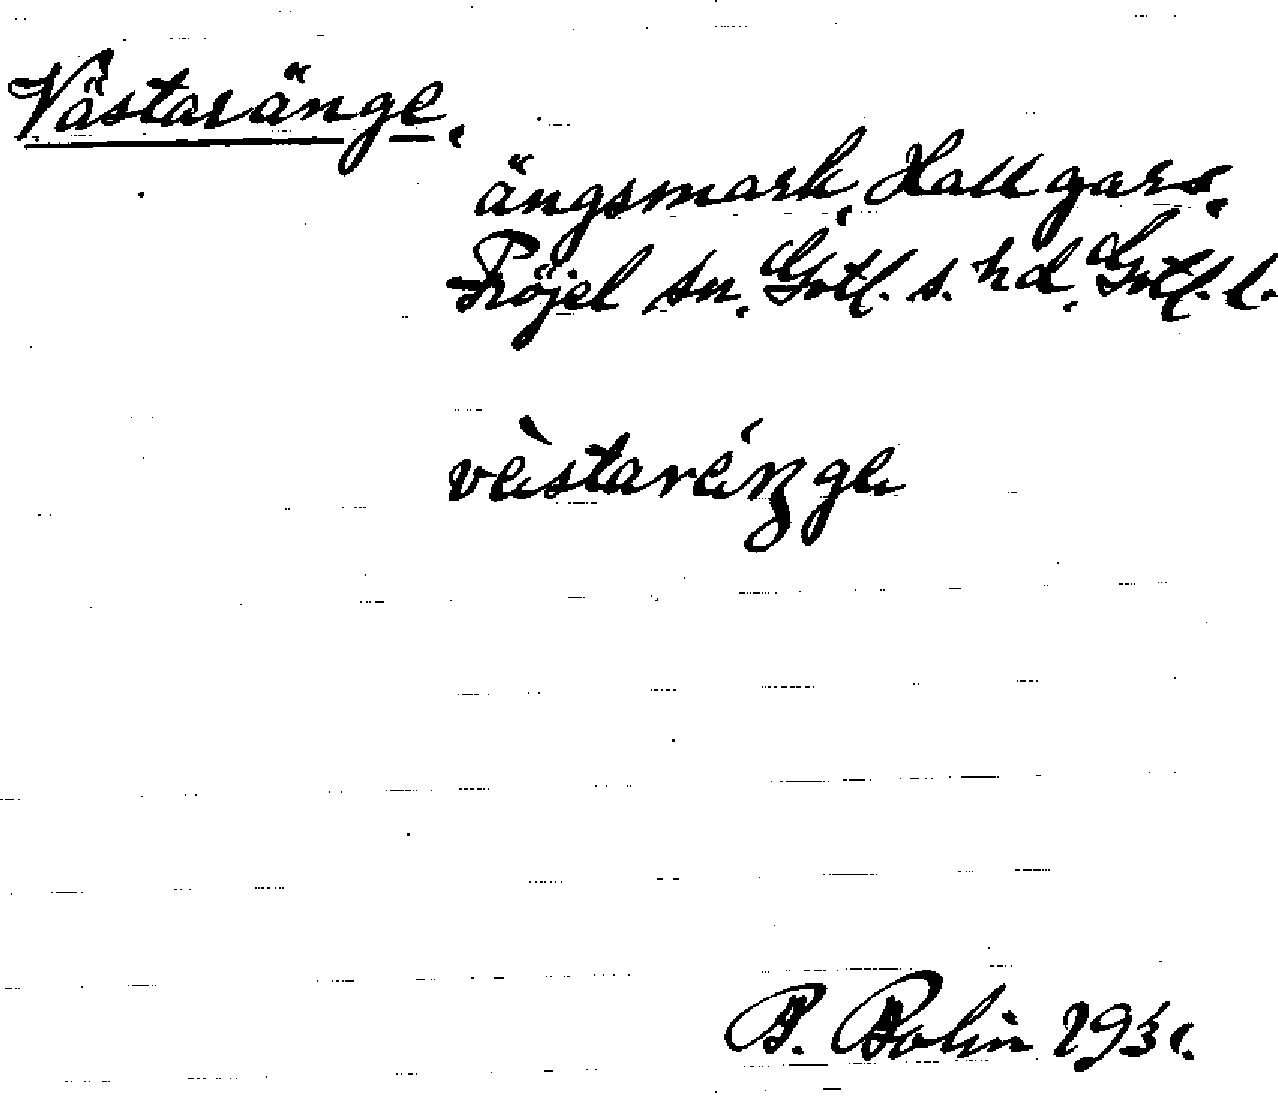 Västaränge.
ängsmark, Hallgars.
Fröjel sn. Gotl. s. hd. Gotl. l.
vèstaréŋge
B. Bolin 1931.